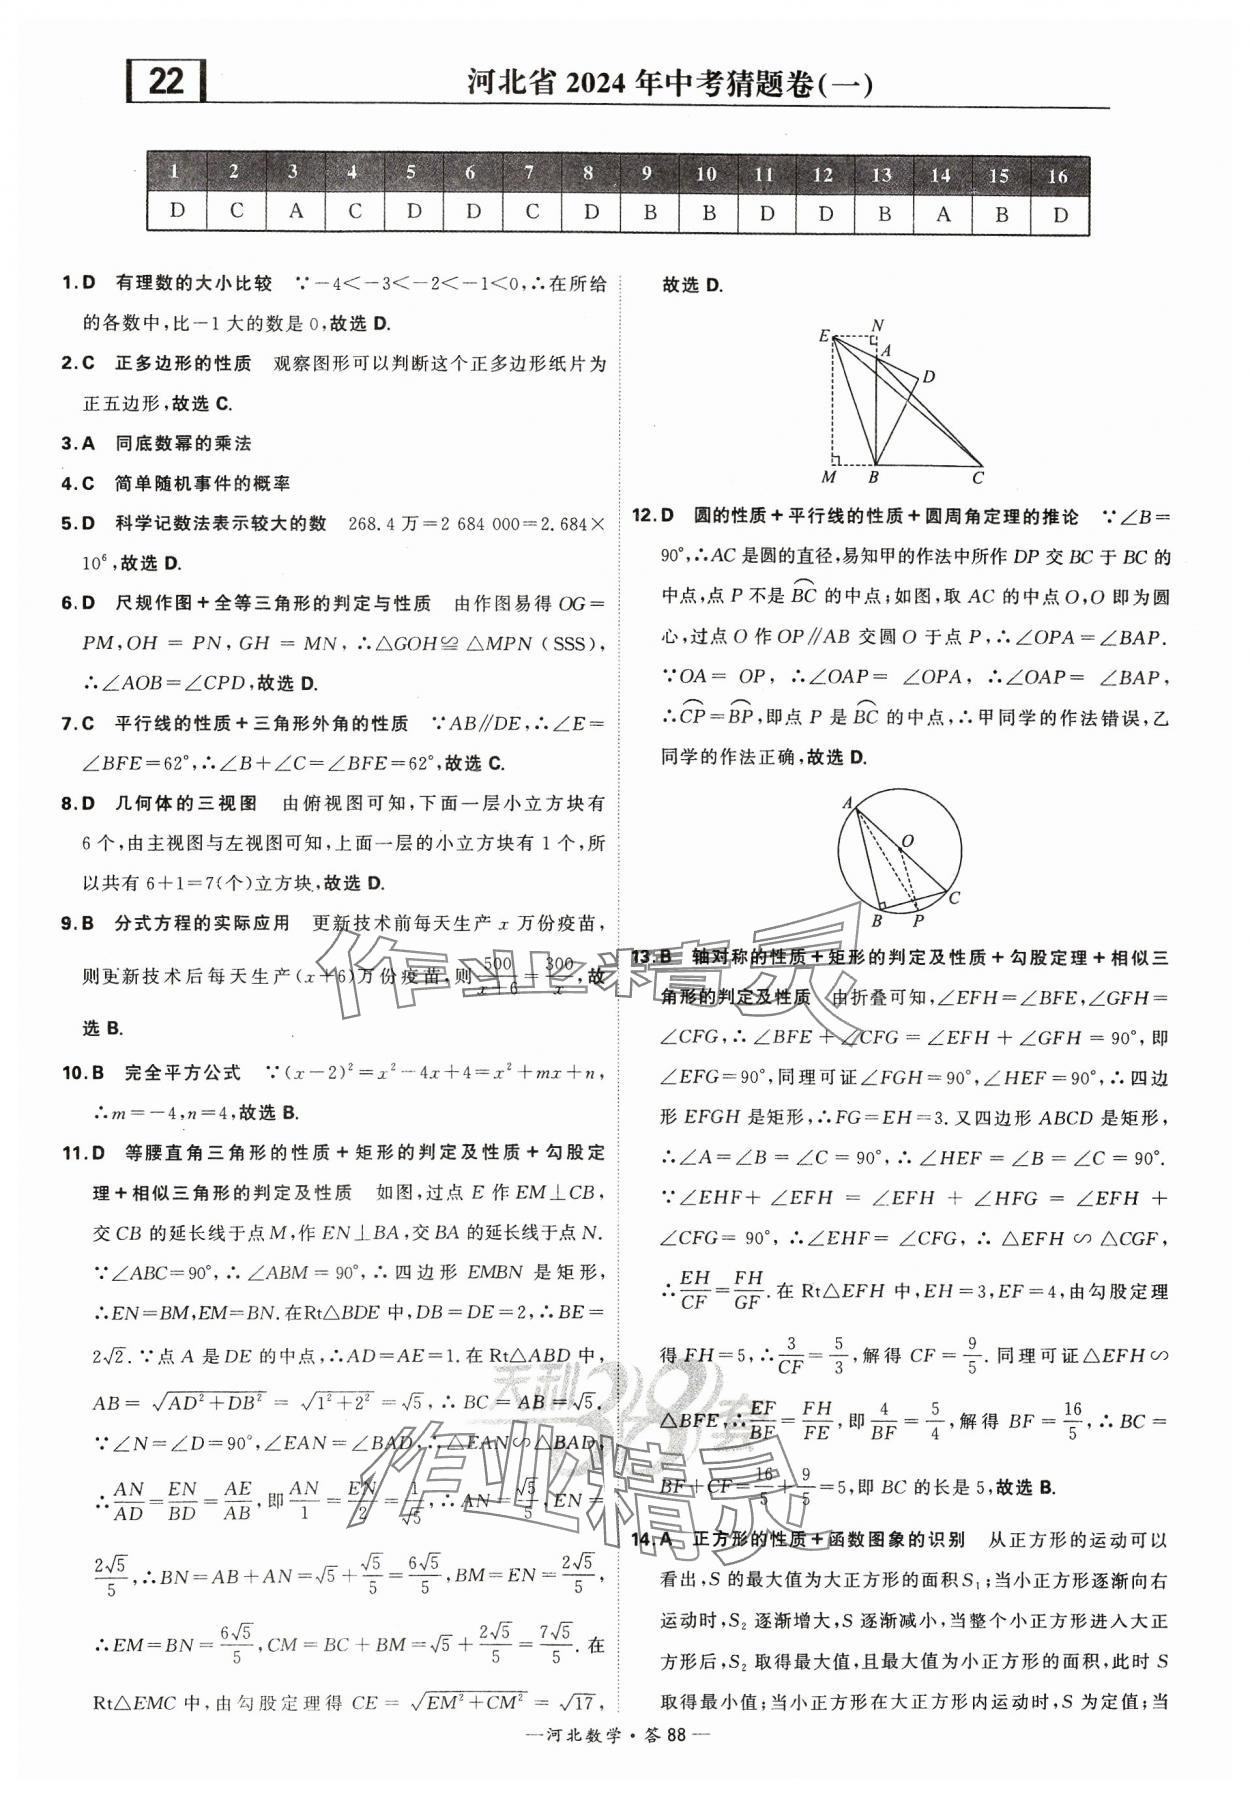 22
河北省 2024 年中考猜题卷(一)
1 2 3 4 5 6 7 8 9 10 11 12 13 14 15 16
D C A C D D C D B B D D B A B D
1.D 有理数的大小比较 ∵-4<-3<-2<-1<0,∴在所给
的各数中,比-1大的数是0,故选 D.
2.C 正多边形的性质 观察图形可以判断这个正多边形纸片为
正五边形,故选 C.
3.A 同底数幂的乘法
4.C 简单随机事件的概率
5.D 科学记数法表示较大的数 268.4万=2 684 000=2.684×
10⁶,故选 D.
6.D 尺规作图+全等三角形的判定与性质 由作图易得OG=
PM,OH=PN,GH=MN,∴△GOH≌△MPN(SSS),
∴∠AOB=∠CPD,故选 D.
7.C 平行线的性质+三角形外角的性质 ∵AB∥DE,∴∠E=
∠BFE=62°,∴∠B+∠C=∠BFE=62°,故选 C.
8.D 几何体的三视图 由俯视图可知,下面一层小立方块有
6个,由主视图与左视图可知,上面一层的小立方块有1个,所
以共有6+1=7(个)立方块,故选 D.
9.B 分式方程的实际应用 更新技术前每天生产x万份疫苗,
则更新技术后每天生产(x+6)万份疫苗,则500/(x+6)=300/x,故
选 B.
10.B 完全平方公式 ∵(x-2)²=x²-4x+4=x²+mx+n,
∴m=-4,n=4,故选 B.
11.D 等腰直角三角形的性质+矩形的判定及性质+勾股定
理+相似三角形的判定及性质 如图,过点E作EM⊥CB,
交CB的延长线于点M,作EN⊥BA,交BA的延长线于点N.
∵∠ABC=90°,∴∠ABM=90°,∴四边形EMBN是矩形,
∴EN=BM,EM=BN.在Rt△BDE中,DB=DE=2,∴BE=
2√2.∵点A是DE的中点,∴AD=AE=1.在Rt△ABD中,
AB=√(AD²+DB²)=√(1²+2²)=√5,∴BC=AB=√5.
∵∠N=∠D=90°,∠EAN=∠BAD,∴△EAN∽△BAD,
∴AN/AD=EN/BD=AE/AB,即AN/1=EN/2=1/√5,∴AN=√5/5,EN=
2√5/5,∴BN=AB+AN=√5+√5/5=6√5/5,BM=EN=2√5/5,
∴EM=BN=6√5/5,CM=BC+BM=√5+2√5/5=7√5/5.在
Rt△EMC中,由勾股定理得CE=√(EM²+CM²)=√17,
故选 D.
E N A D M B C
12.D 圆的性质+平行线的性质+圆周角定理的推论 ∵∠B=
90°,∴AC是圆的直径,易知甲的作法中所作DP交BC于BC的
中点,点P不是BC⌒的中点;如图,取AC的中点O,O即为圆
心,过点O作OP∥AB交圆O于点P,∴∠OPA=∠BAP.
∵OA=OP,∴∠OAP=∠OPA,∴∠OAP=∠BAP,
∴CP⌒=BP⌒,即点P是BC⌒的中点,∴甲同学的作法错误,乙
同学的作法正确,故选 D.
A O B P C
13.B 轴对称的性质+矩形的判定及性质+勾股定理+相似三
角形的判定及性质 由折叠可知,∠EFH=∠BFE,∠GFH=
∠CFG,∴∠BFE+∠CFG=∠EFH+∠GFH=90°,即
∠EFG=90°,同理可证∠FGH=90°,∠HEF=90°,∴四边
形EFGH是矩形,∴FG=EH=3.又四边形ABCD是矩形,
∴∠A=∠B=∠C=90°,∴∠HEF=∠B=∠C=90°.
∵∠EHF+∠EFH=∠EFH+∠HFG=∠EFH+
∠CFG=90°,∴∠EHF=∠CFG,∴△EFH∽△CGF,
∴EH/CF=FH/GF.在Rt△EFH中,EH=3,EF=4,由勾股定理
得FH=5,∴3/CF=5/3,解得CF=9/5.同理可证△EFH∽
△BFE,∴EF/BF=FH/FE,即4/BF=5/4,解得BF=16/5,∴BC=
BF+CF=16/5+9/5=5,即BC的长是5,故选 B.
14.A 正方形的性质+函数图象的识别 从正方形的运动可以
看出,S的最大值为大正方形的面积S₁;当小正方形逐渐向右
运动时,S₂逐渐增大,S逐渐减小,当整个小正方形进入大正
方形后,S₂取得最大值,且最大值为小正方形的面积,此时S
取得最小值;当小正方形在大正方形内运动时,S为定值;当
作业精灵
天利38套
作业精灵
—河北数学·答 88—